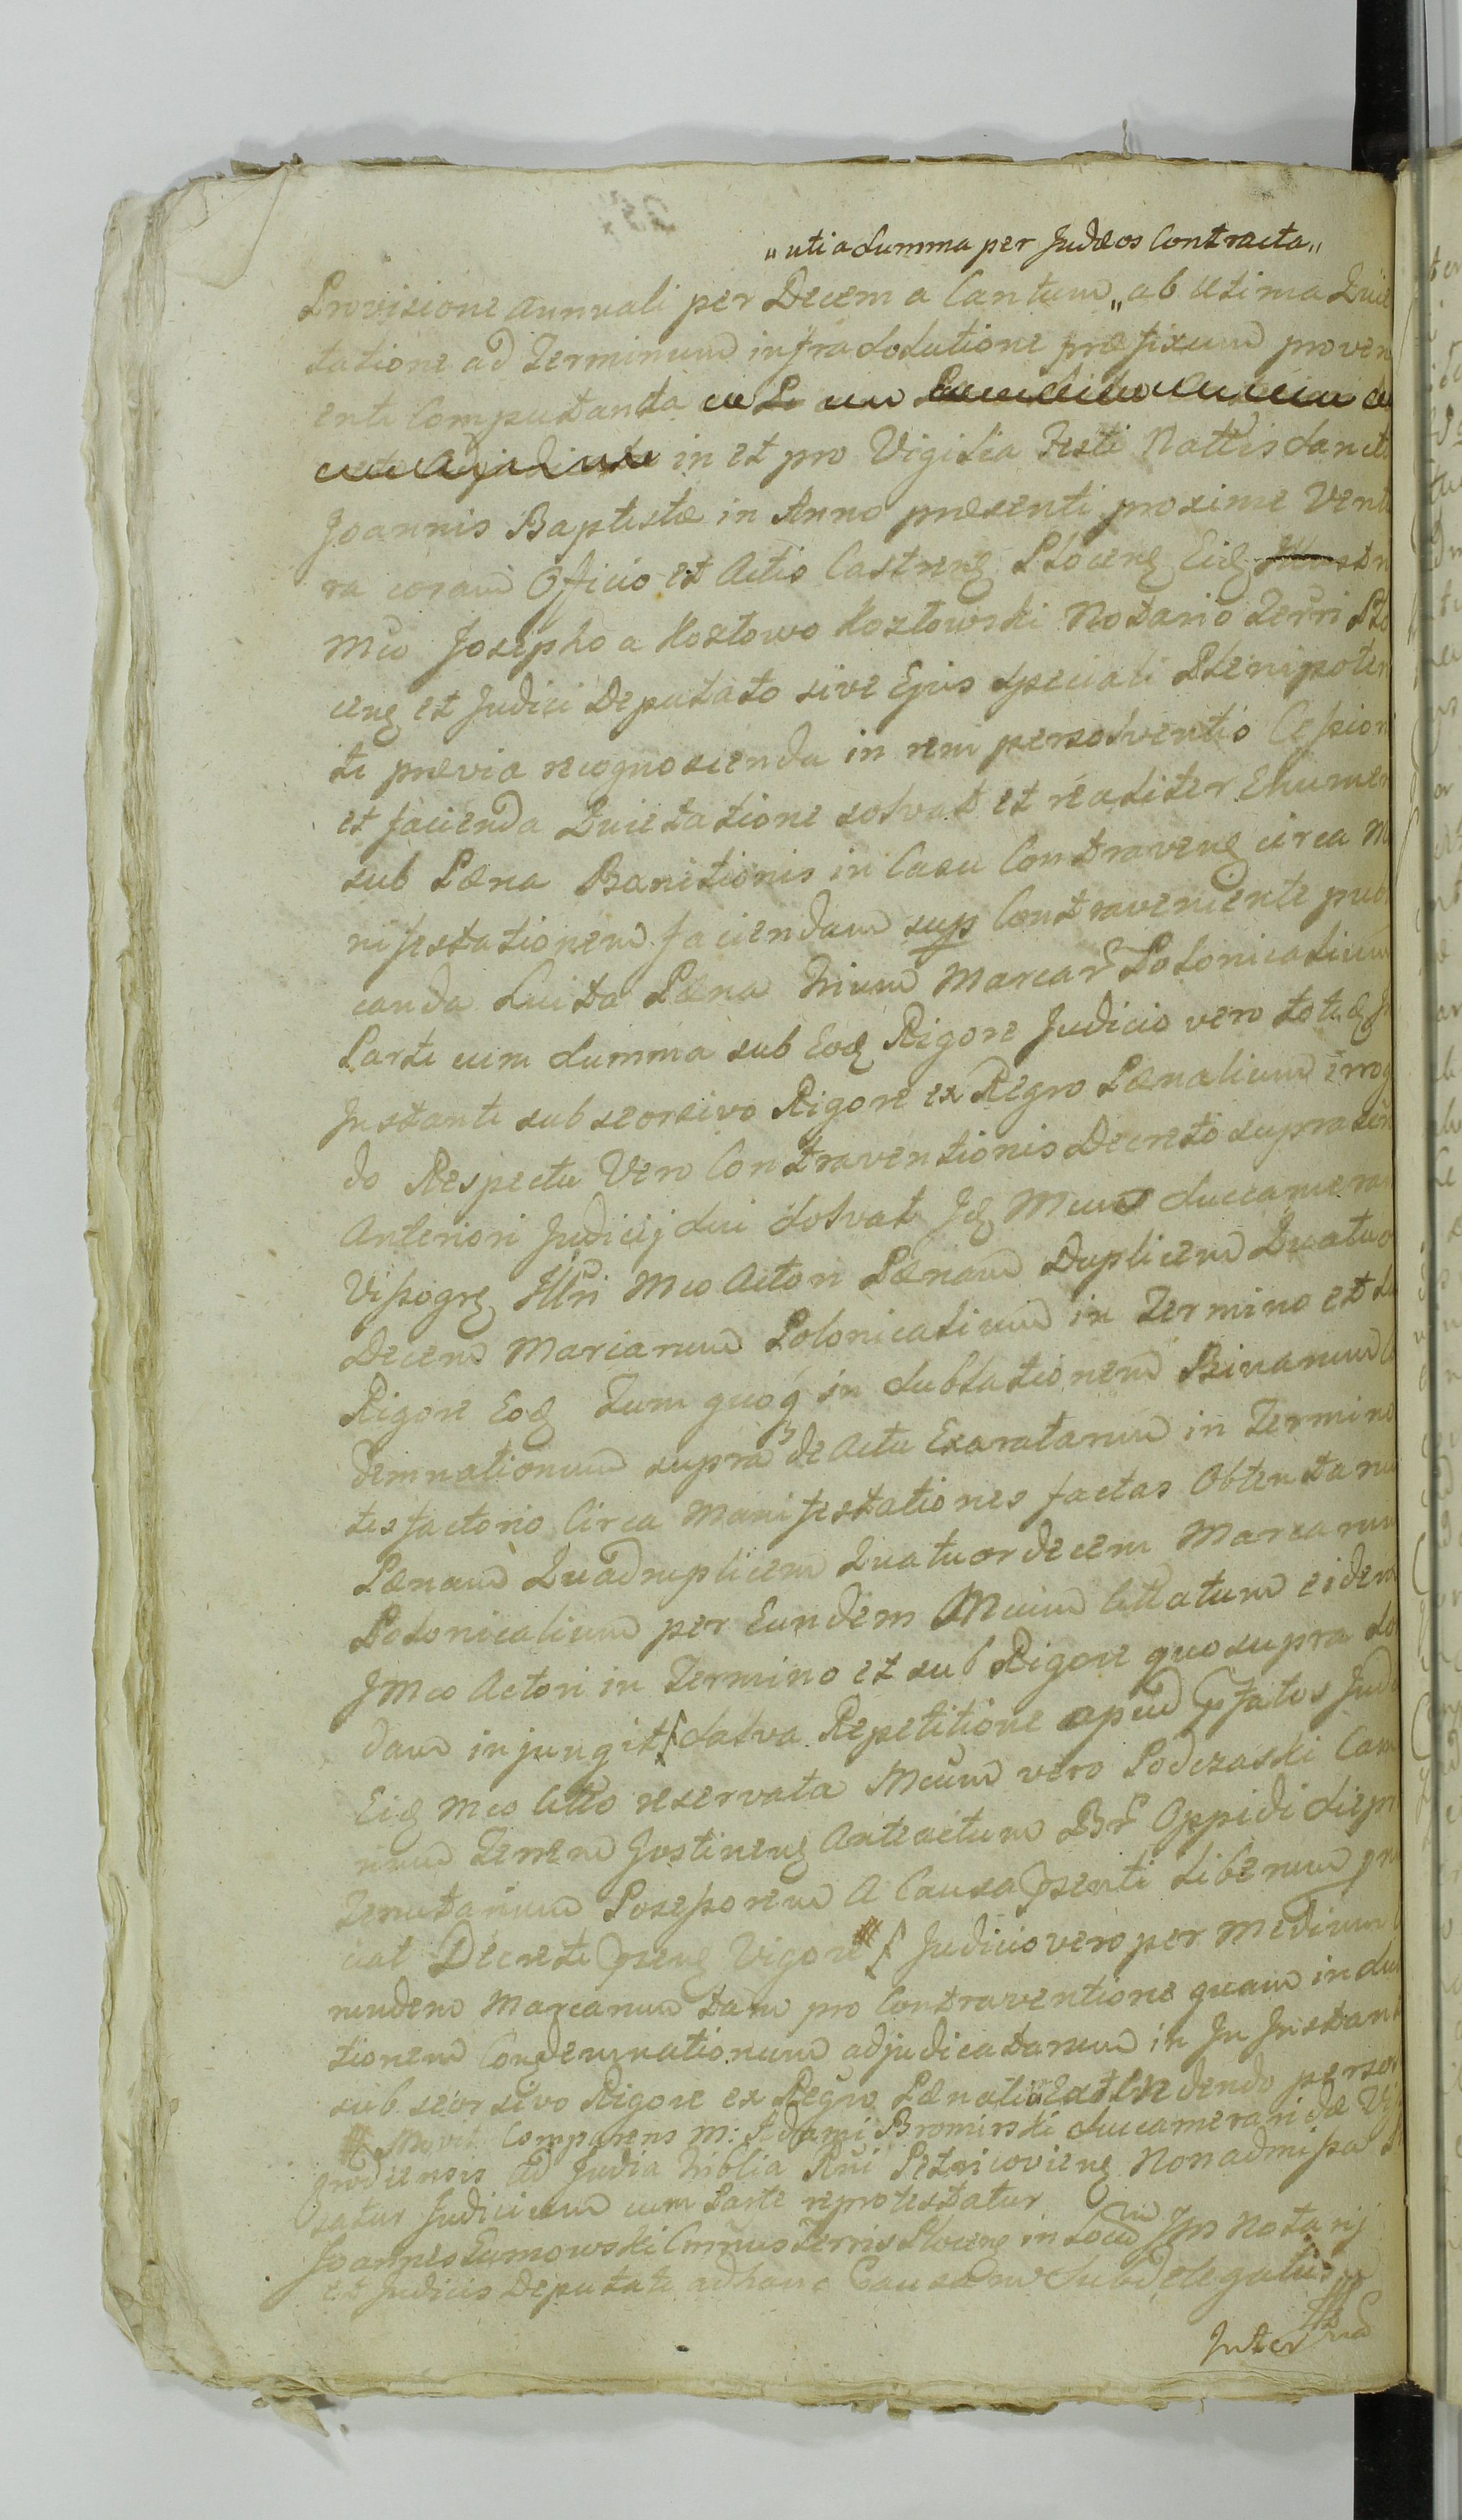 "uti a Summa per Judæos Contracta"
Provisione Annuali per Decem a Cantum „ ab ultima Quie
tatione ad Terminum infra Solutione præfixum proven
enti Computanda
in et pro Vigilia Festi Nattis Sancti
Joannis Baptistæ in Anno præsenti proxime Ventu
ra coram Officio et Actis Castreng Ploceng Eid
Mco Josepho a Kozłowo Kozłowski Notario Terri Plo
ceng et Judici Deputato sive Ejus Speciali Plenipoten
ti prævia recognoscenda in rem persolventis Cessione
et facienda Quietatione solvat et realiter Enumer
sub Pæna Banitionis in Casu Contraveng circa Ma
nifestationem faciendam sup Contraveniente publi
canda Luita Pæna Trium Marcar Polonicalium
Parti cum Summa sub Eod Rigore Judicio vero totid In
Instanti sub seorsivo Rigore ex Regro Pænalium irrog
do Respectu Vero Contraventionis Decreto supra
Anteriori Judicij sui Solvat Id Mcus Succamera
Vissogre Illri Mco Actori Pænam Duplicem Quatuor
Decem Marcarum Polonicalium in Termino et Su
Rigore Eod Tum quoq in Sublationem Binarum Con
demnationum supra de Actu Exaratarum in Termino
tisfactorio Circa Manifestationes factas Obtentaru
Pænam Quadruplicem Quatuordecem Marcarum
Polonicalium per Eundem Mcum Cittatum eidem
JMco Actori in Termino et sub Rigore quo supra Sol
dam injungit Salva Repetitione apud Pfatos Judæ
Eid Mco Citto reservata Mcum vero Podczaski Cam
num Terrem Gostineng Anteactum Br Oppidi Sierp
Tenutarium Possessorem A Causa psenti Liberum pro
ciat Decreti pseng Vigore Judicio vero per Medium
rundem Marcarum tam pro Contraventione quam in Sub
tionem Condemnationum adjudicatarum in In Instanti
sub seorsivo Rigore ex Regro Pænalium Extendendo persol
Movit Comparens M: Adami Bromirski Succameraridæ Vis
grodiensis ad Judia Triblia Rni Petricovieng Non admissa
satur Judicium cum Parte reprotestatur
Joannes Sumowski Cmnus Terris Ploceng in Locum Jm Notarij
et Judicis Deputati ad hanc Causam Subdelegatus
Inter